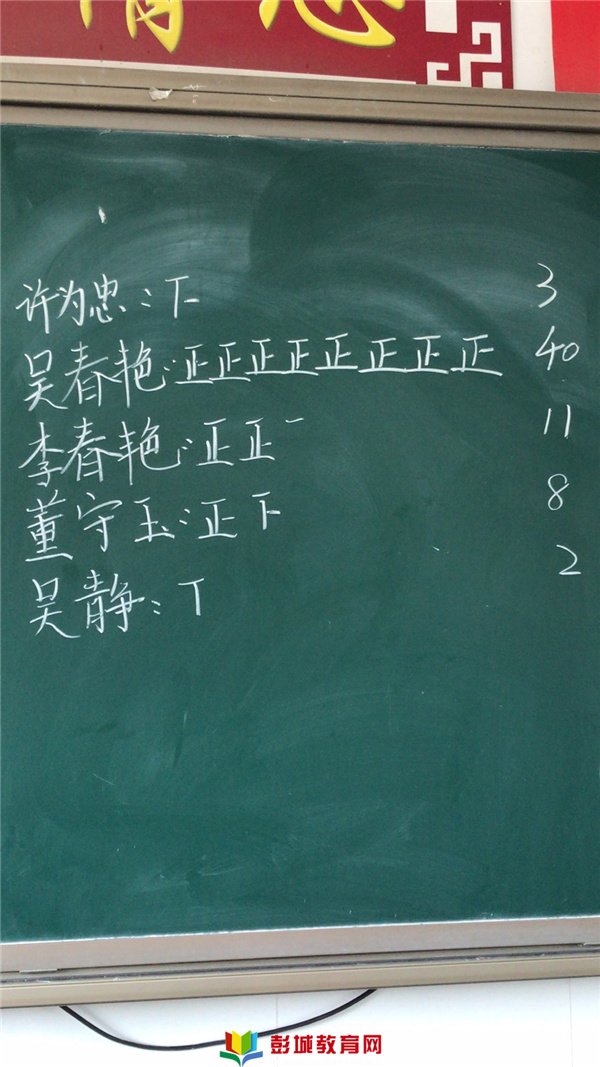 许为忠:下 3
吴春艳:正正正正正正正正 40
李春艳:正正一 11
董守玉:正下 8
吴静:丅 2
彭城教育网